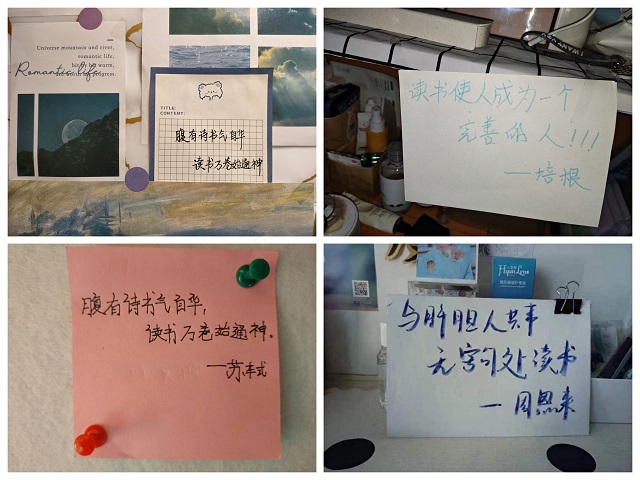 Universe mountains and river,
romantic life,
Romantic life
TITLE:
CONTENT:
腹有诗书气自华
读书万卷始通神
读书使人成为一个
完善的人!!!
—培根
腹有诗书气自华,
读书万卷始通神。
—苏轼
与肝胆人共事
无字句处读书
—周恩来